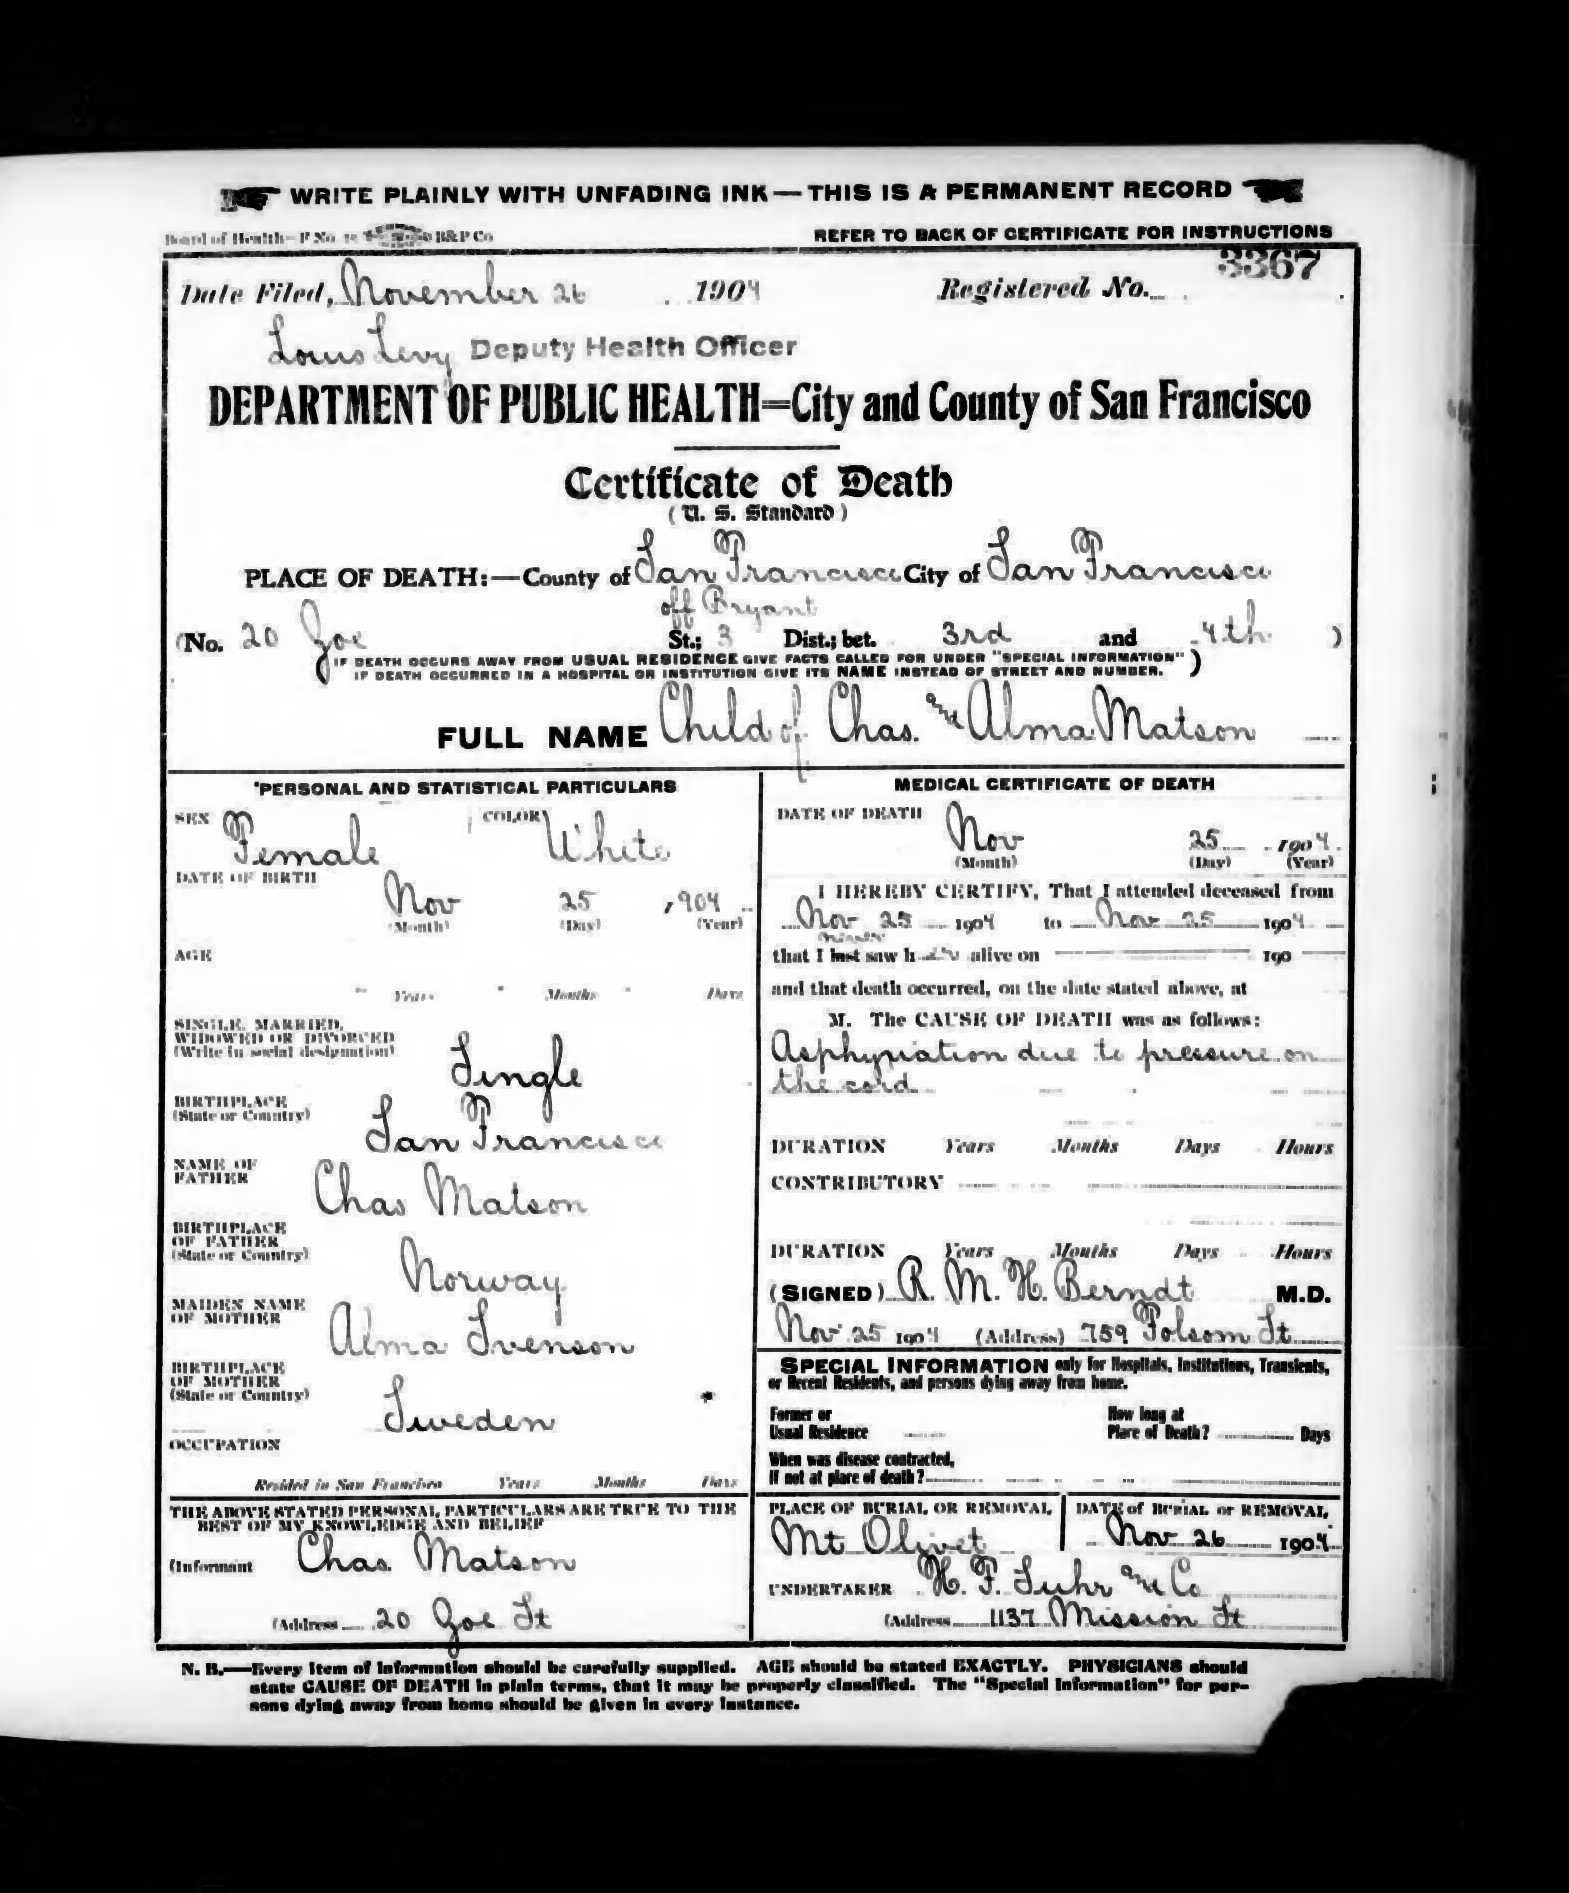 WRITE PLAINLY WITH UNFADING INK — THIS IS A PERMANENT RECORD
Board of Health—F No. B&P Co
REFER TO BACK OF CERTIFICATE FOR INSTRUCTIONS
3367
Date Filed, November 26 1904 Registered No.
Louis Levy Deputy Health Officer
DEPARTMENT OF PUBLIC HEALTH=City and County of San Francisco
Certificate of Death
(U. S. Standard)
PLACE OF DEATH:—County of San Francisco City of San Francisco
off Bryant
(No. 20 Zoe St.; 3 Dist.; bet. 3rd and 4th )
IF DEATH OCCURS AWAY FROM USUAL RESIDENCE GIVE FACTS CALLED FOR UNDER "SPECIAL INFORMATION"
IF DEATH OCCURRED IN A HOSPITAL OR INSTITUTION GIVE ITS NAME INSTEAD OF STREET AND NUMBER. )
FULL NAME Child of Chas. and Alma Matson
PERSONAL AND STATISTICAL PARTICULARS
SEX Female COLOR White
DATE OF BIRTH
Nov 25 1904
(Month) (Day) (Year)
AGE
Years Months Days
SINGLE, MARRIED,
WIDOWED OR DIVORCED
(Write in social designation)
Single
BIRTHPLACE
(State or Country)
San Francisco
NAME OF
FATHER
Chas Matson
BIRTHPLACE
OF FATHER
(State or Country)
Norway
MAIDEN NAME
OF MOTHER
Alma Svenson
BIRTHPLACE
OF MOTHER
(State or Country)
Sweden
OCCUPATION
Resided in San Francisco Years Months Days
THE ABOVE STATED PERSONAL PARTICULARS ARE TRUE TO THE
BEST OF MY KNOWLEDGE AND BELIEF
(Informant Chas. Matson
(Address 20 Zoe St
MEDICAL CERTIFICATE OF DEATH
DATE OF DEATH
Nov 25 1904
(Month) (Day) (Year)
I HEREBY CERTIFY, That I attended deceased from
Nov 25 1904 to Nov 25 1904
never
that I last saw h er alive on 190
and that death occurred, on the date stated above, at
M. The CAUSE OF DEATH was as follows:
Asphyxiation due to pressure on
the cord
DURATION Years Months Days Hours
CONTRIBUTORY
DURATION Years Months Days Hours
(SIGNED) R. M. H. Berndt M.D.
Nov 25 1904 (Address) 759 Folsom St
SPECIAL INFORMATION only for Hospitals, Institutions, Transients,
or Recent Residents, and persons dying away from home.
Former or
Usual Residence
How long at
Place of Death? Days
When was disease contracted,
If not at place of death?
PLACE OF BURIAL OR REMOVAL
Mt Olivet
DATE of BURIAL or REMOVAL
Nov 26 1904
UNDERTAKER H. F. Suhr and Co
(Address 1137 Mission St
N. B.—Every item of information should be carefully supplied. AGE should be stated EXACTLY. PHYSICIANS should
state CAUSE OF DEATH in plain terms, that it may be properly classified. The "Special Information" for per-
sons dying away from home should be given in every instance.